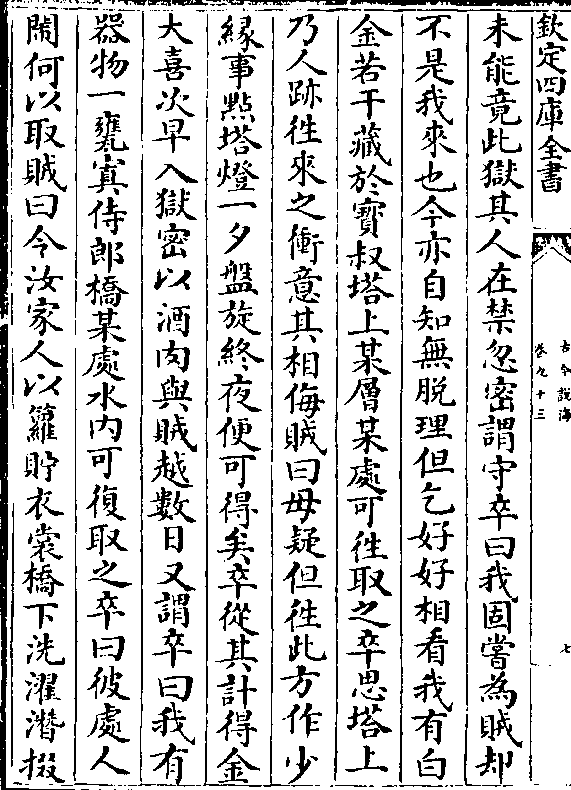 欽定四庫全書
古今說海
卷九十三
七
未能竟此獄其人在禁忽密謂守卒曰我固嘗為賊却
不是我來也今亦自知無脫理但乞好好相看我有白
金若干藏於寳叔塔上某層某處可徃取之卒思塔上
乃人跡徃來之衝意其相侮賊曰毋疑但徃此方作少
緣事點塔燈一夕盤旋終夜便可得矣卒從其計得金
大喜次早入獄密以酒肉與賊越數日又謂卒曰我有
器物一甕寘侍郎橋某處水内可復取之卒曰彼處人
閙何以取賊曰令汝家人以籮貯衣裳橋下洗濯潛掇